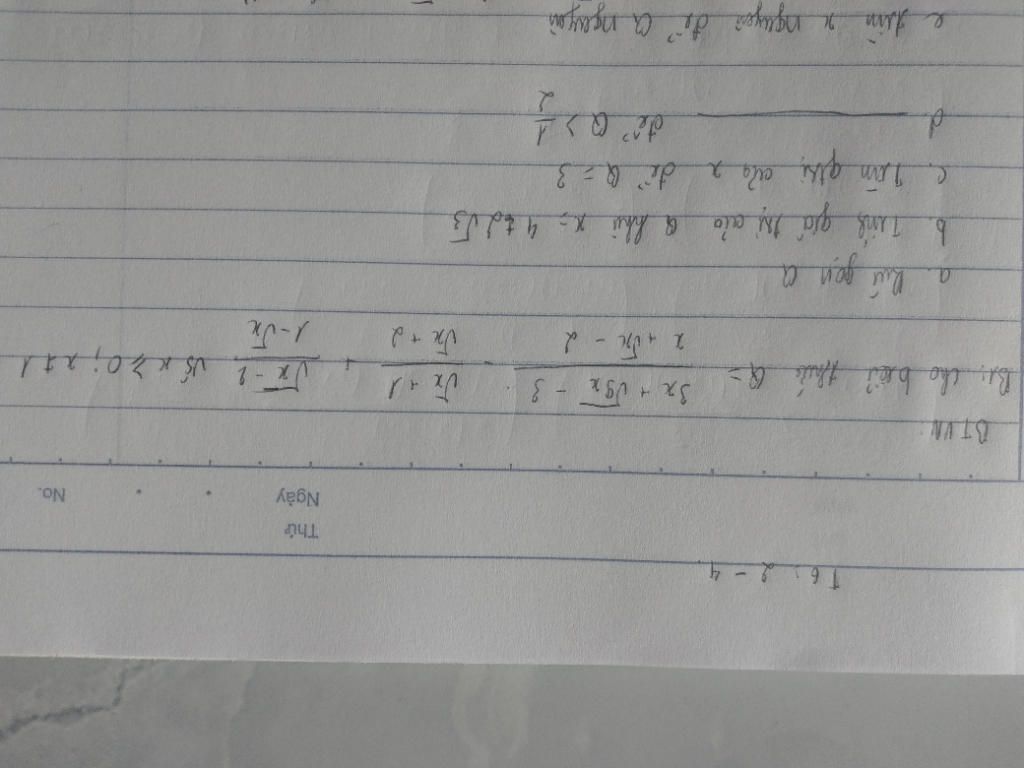 T6: 2 - 4
Thứ
Ngày No.
BTVN:
B1: Cho biểu thức Q = \frac{3x + \sqrt{9x} - 3}{x + \sqrt{x} - 2} - \frac{\sqrt{x} + 1}{\sqrt{x} + 2} + \frac{\sqrt{x} - 2}{1 - \sqrt{x}} với x ≥ 0; x ≠ 1
a. Rút gọn Q
b. Tính giá trị của Q khi x = 4 + 2\sqrt{3}
c. Tìm gtrị của x để Q = 3
d. ———— để Q > \frac{1}{2}
e. tìm x nguyên để Q nguyên